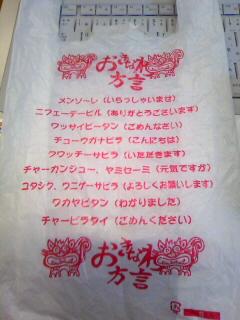 おきなわ
方言
メンソーレ（いらっしゃいませ）
ニフェーデービル（ありがとうございます）
ワッサイビータン（ごめんなさい）
チューウガナビラ（こんにちは）
クワッチーサビラ（いただきます）
チャーガンジュー、ヤミセーミ（元気ですか）
ユタシク、ウニゲーサビラ（よろしくお願いします）
ワカヤビタン（わかりました）
チャービラタイ（ごめんください）
おきなわ
方言